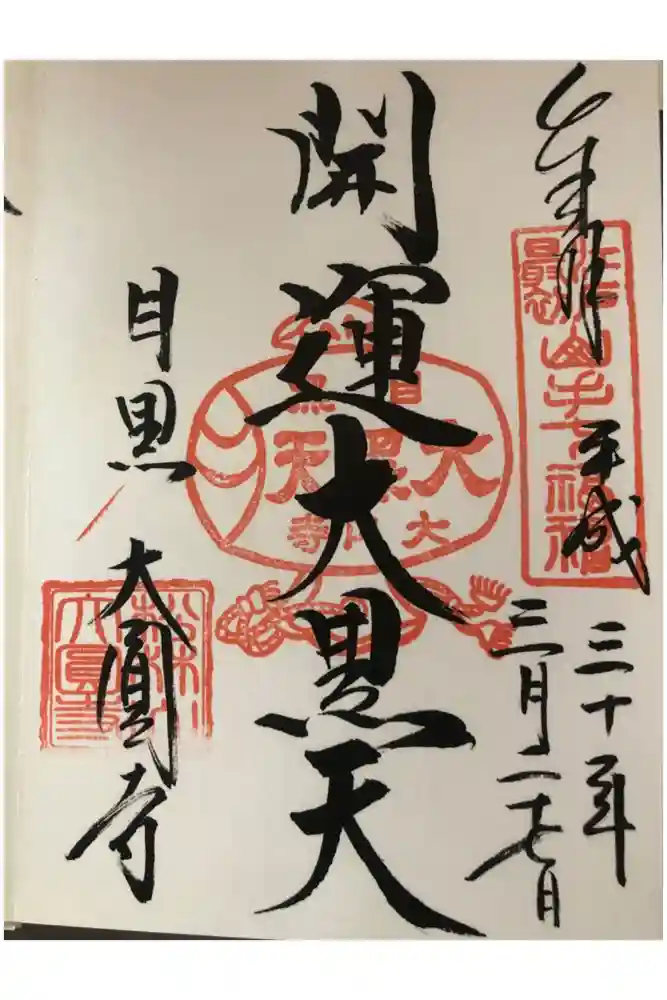 奉拝
平成
三十年
三月二十七日
最初山手七福神
開運大黒天
大黒天
大円寺
目黒
大圓寺